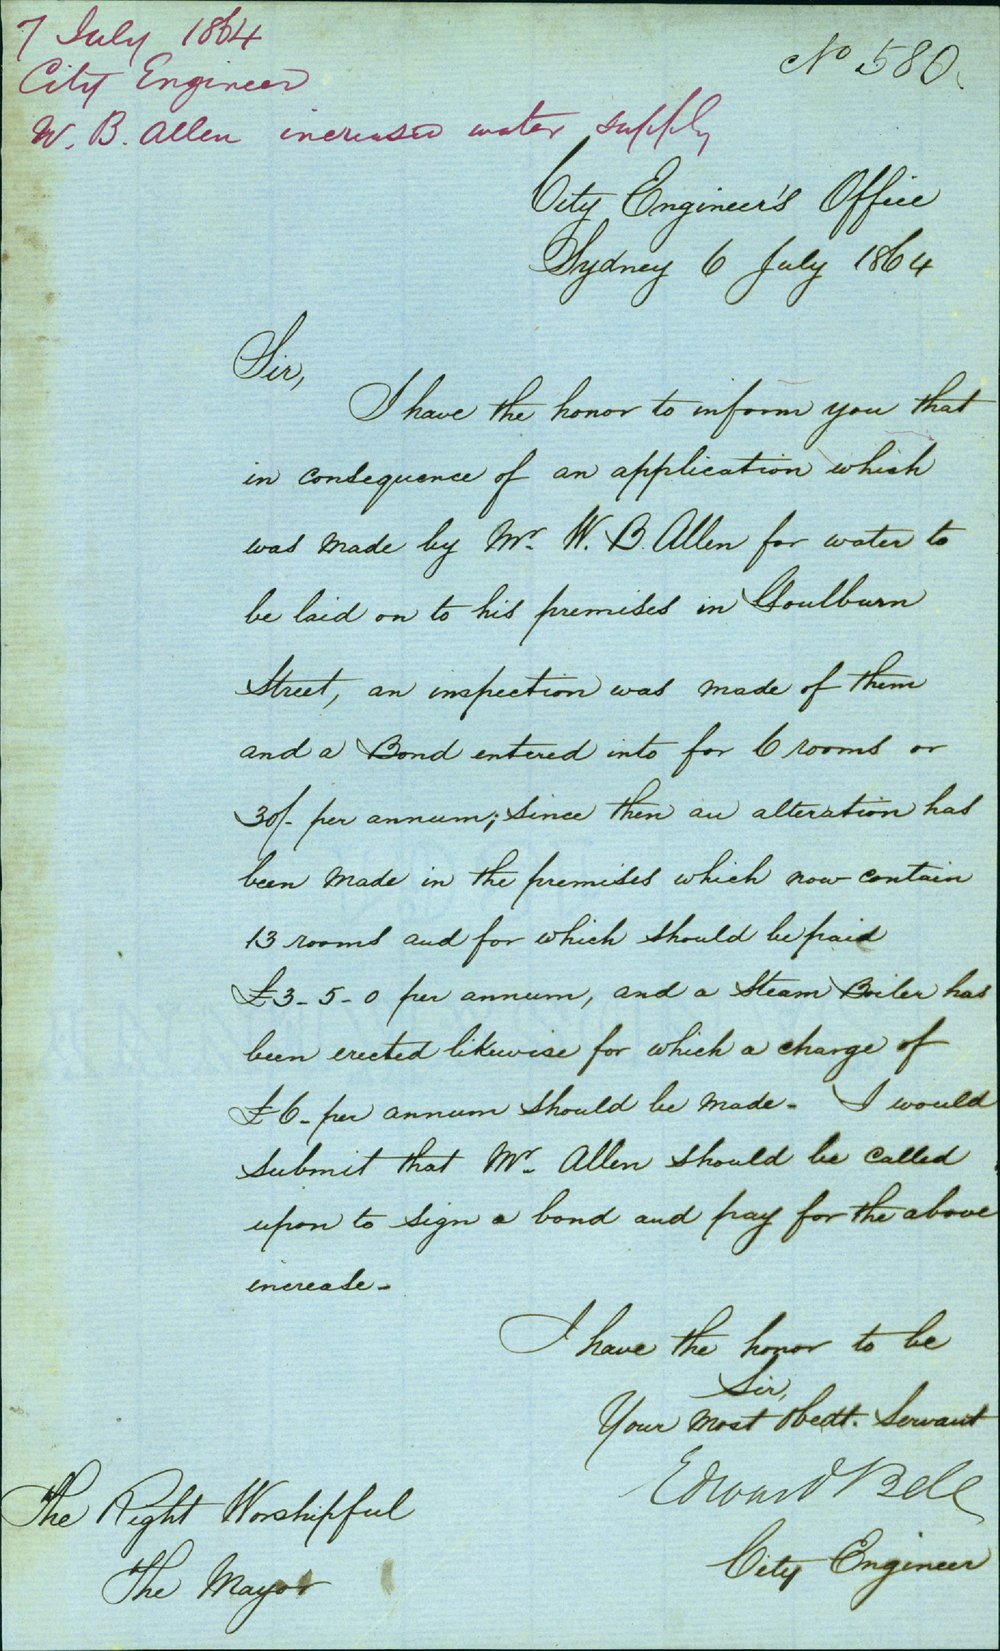 7 July 1864
City Engineer
W. B. Allen increased water supply
No 580
City Engineer's Office
Sydney 6 July 1864
Sir,
I have the honor to inform you that
in consequence of an application which
was made by Mr. W. B. Allen for water to
be laid on to his premises in Goulburn
Street, an inspection was made of them
and a Bond entered into for 6 rooms or
30/- per annum; since then an alteration has
been made in the premises which now contain
13 rooms and for which should be paid
£3-5-0 per annum, and a Steam Boiler has
been erected likewise for which a charge of
£6- per annum should be made- I would
submit that Mr. Allen should be called
upon to sign a bond and pay for the above
increase-
I have the honor to be
Sir,
Your most Obedt. Servant
Edward Bell
City Engineer
The Right Worshipful
The Mayor